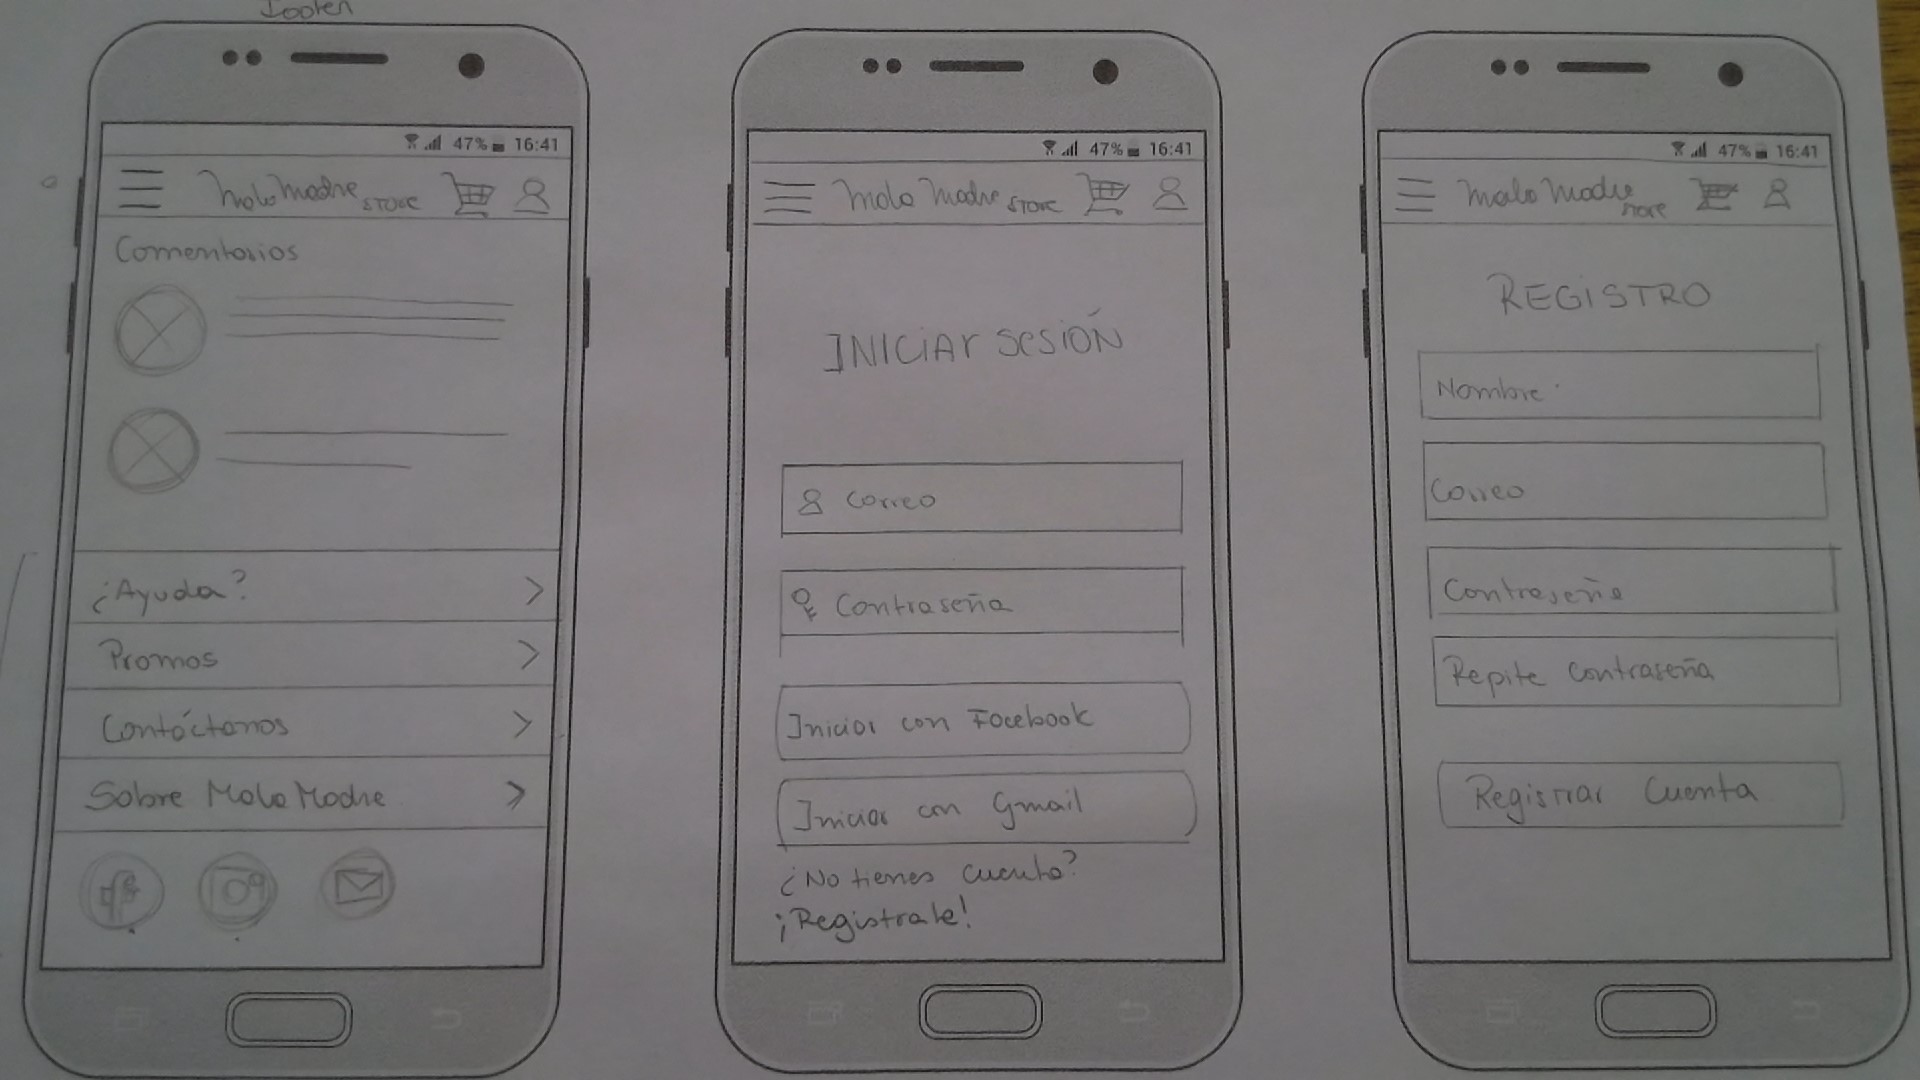 Footer
47% 16:41
MalaMadre STORE
Comentarios
¿Ayuda?
Promos
Contáctanos
Sobre MalaMadre
47% 16:41
Mala Madre STORE
INICIAR SESIÓN
Correo
Contraseña
Iniciar con Facebook
Iniciar con Gmail
¿No tienes cuenta?
¡Registrate!
47% 16:41
Mala Madre STORE
REGISTRO
Nombre
Correo
Contraseña
Repite contraseña
Registrar Cuenta